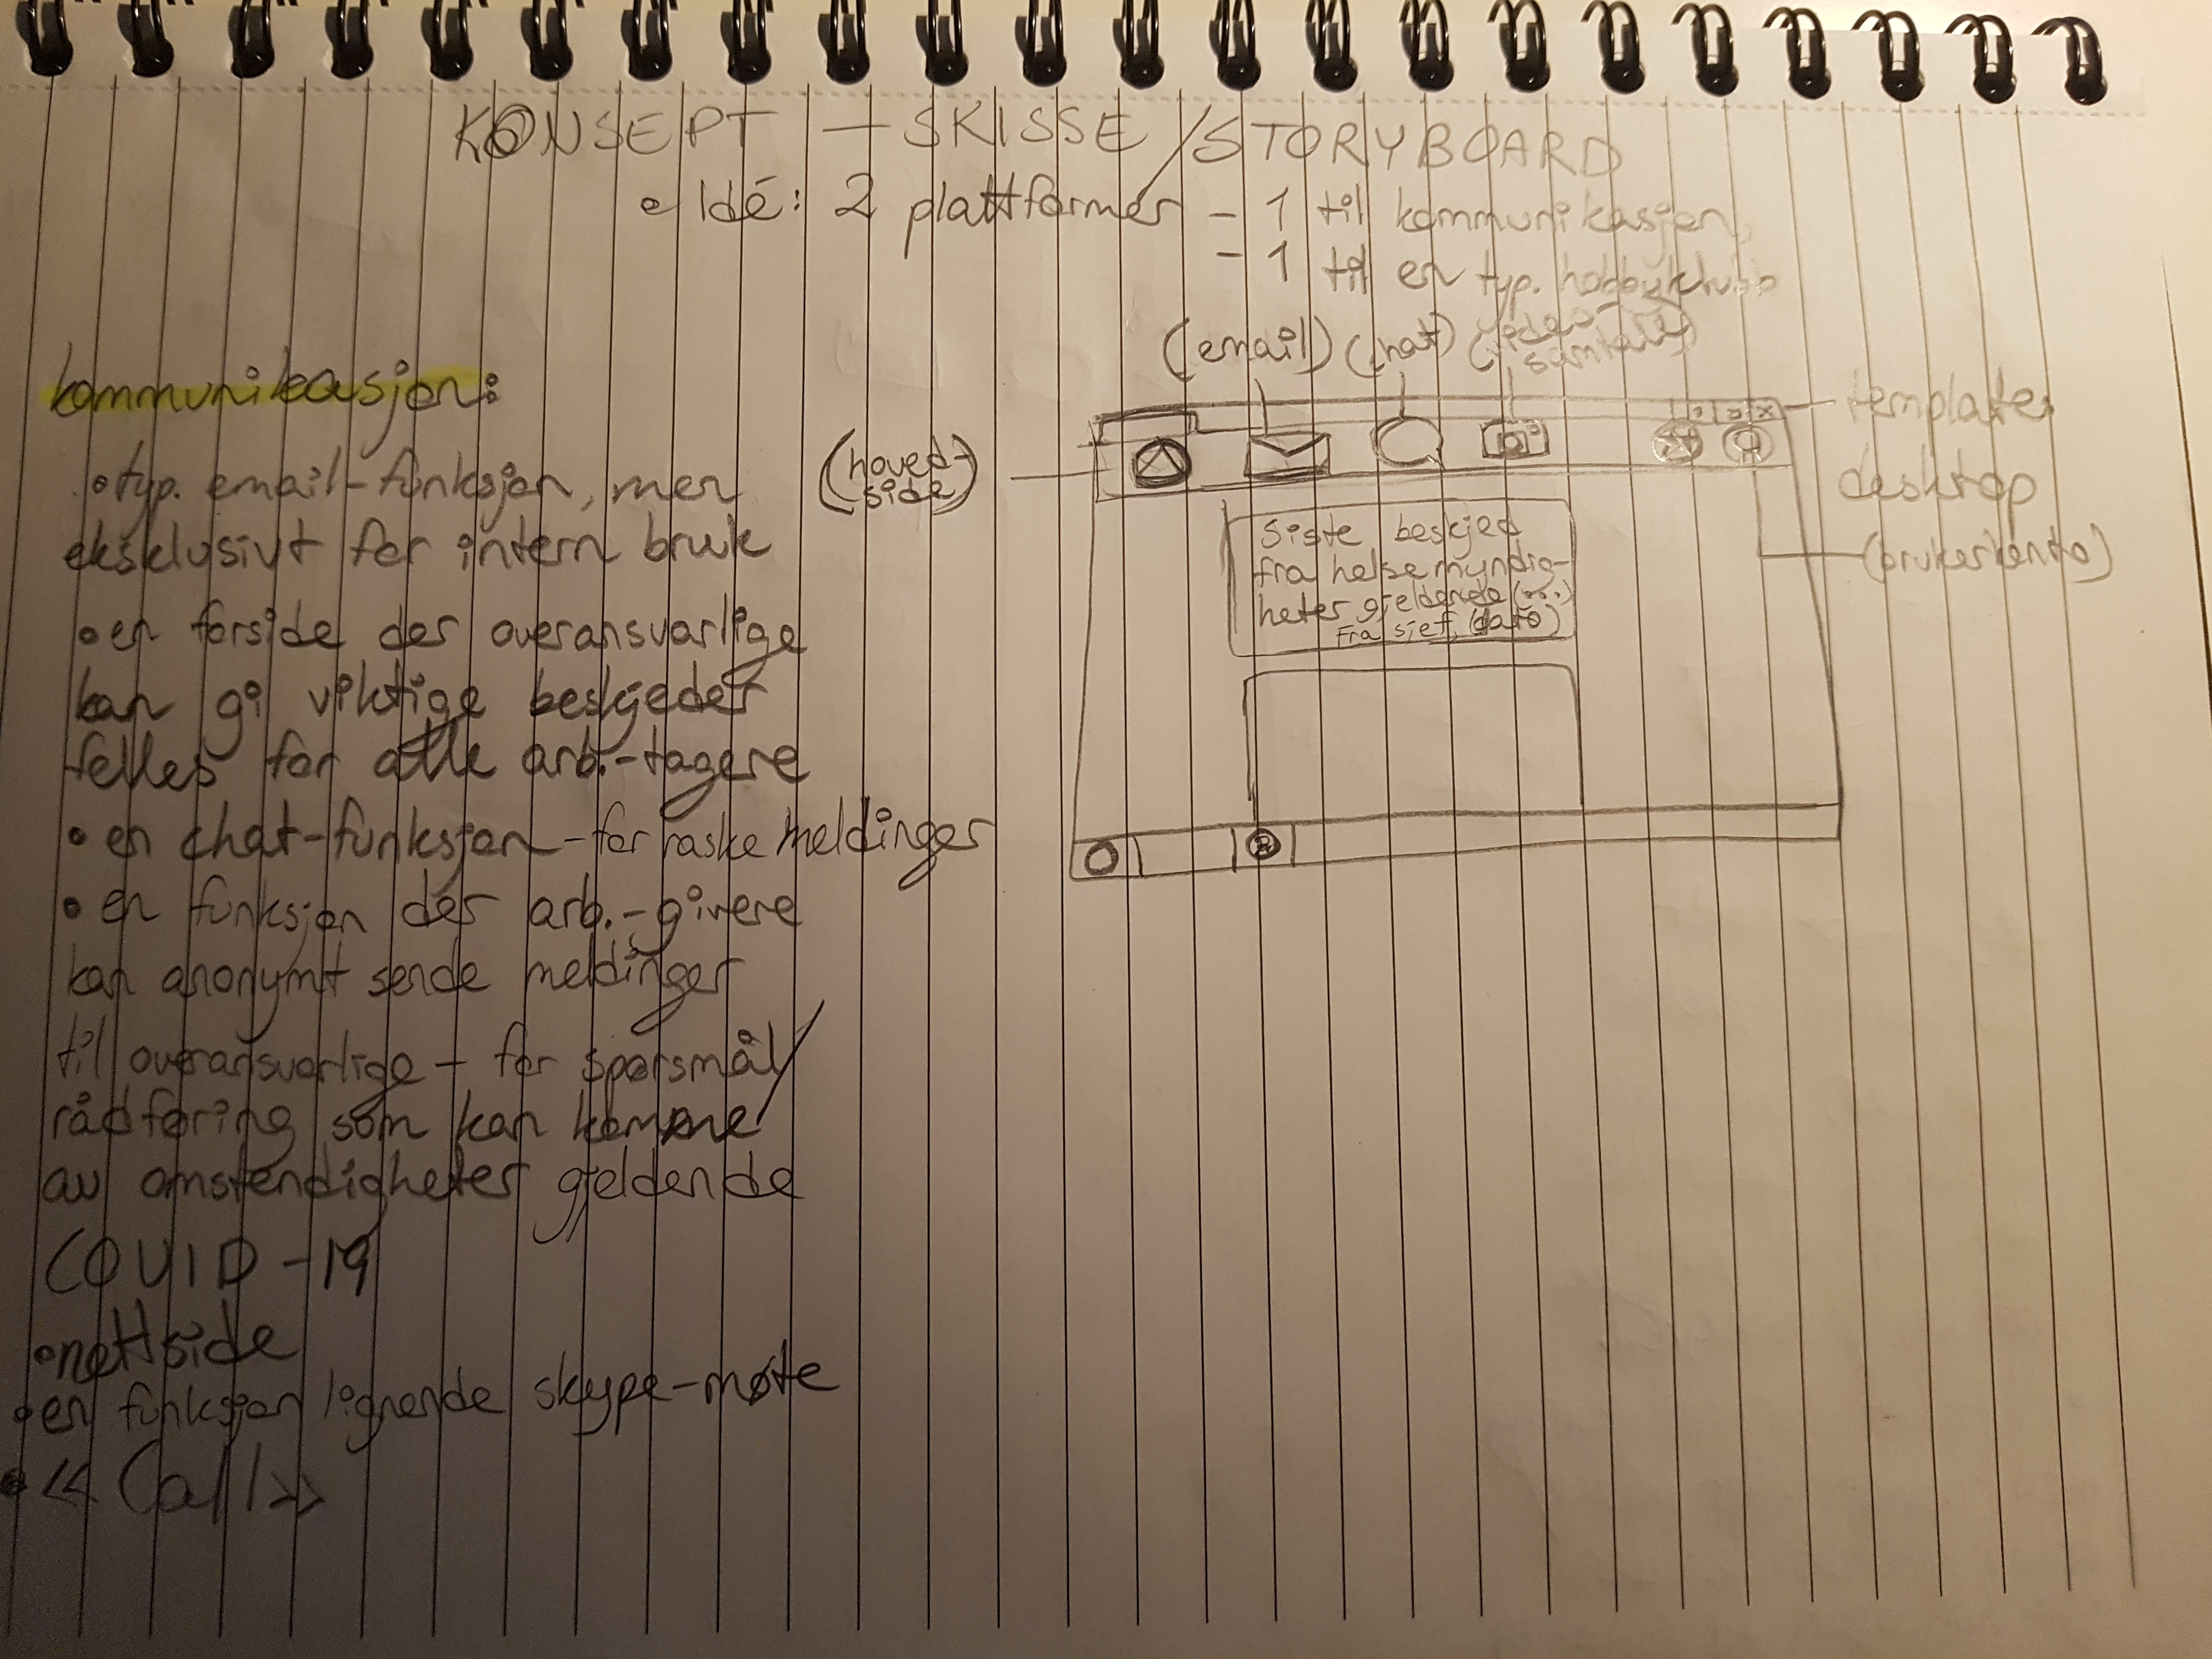 KONSEPT – SKISSE/STORYBOARD
• Idé: 2 plattformer – 1 til kommunikasjon,
– 1 til en typ. hobbyklubb
(email) (chat) (video-
samtale)
kommunikasjon:
• typ. email-funksjon, men
eksklusivt for intern bruk
• en forside der overansvarlige
kan gi viktige beskjeder
felles for alle arb.-tagere
• en chat-funksjon – for raske meldinger
• en funksjon der arb.-givere
kan anonymt sende meldinger
til overansvarlige – for spørsmål/
rådføring som kan komme
av omstendigheter gjeldende
COVID-19
• nettside
• en funksjon lignende skype-møte
• «Call»
(hoved-
side)
template
desktop
(brukerkonto)
Siste beskjed
fra helsemyndig-
heter gjeldende
fra sjef, (dato)